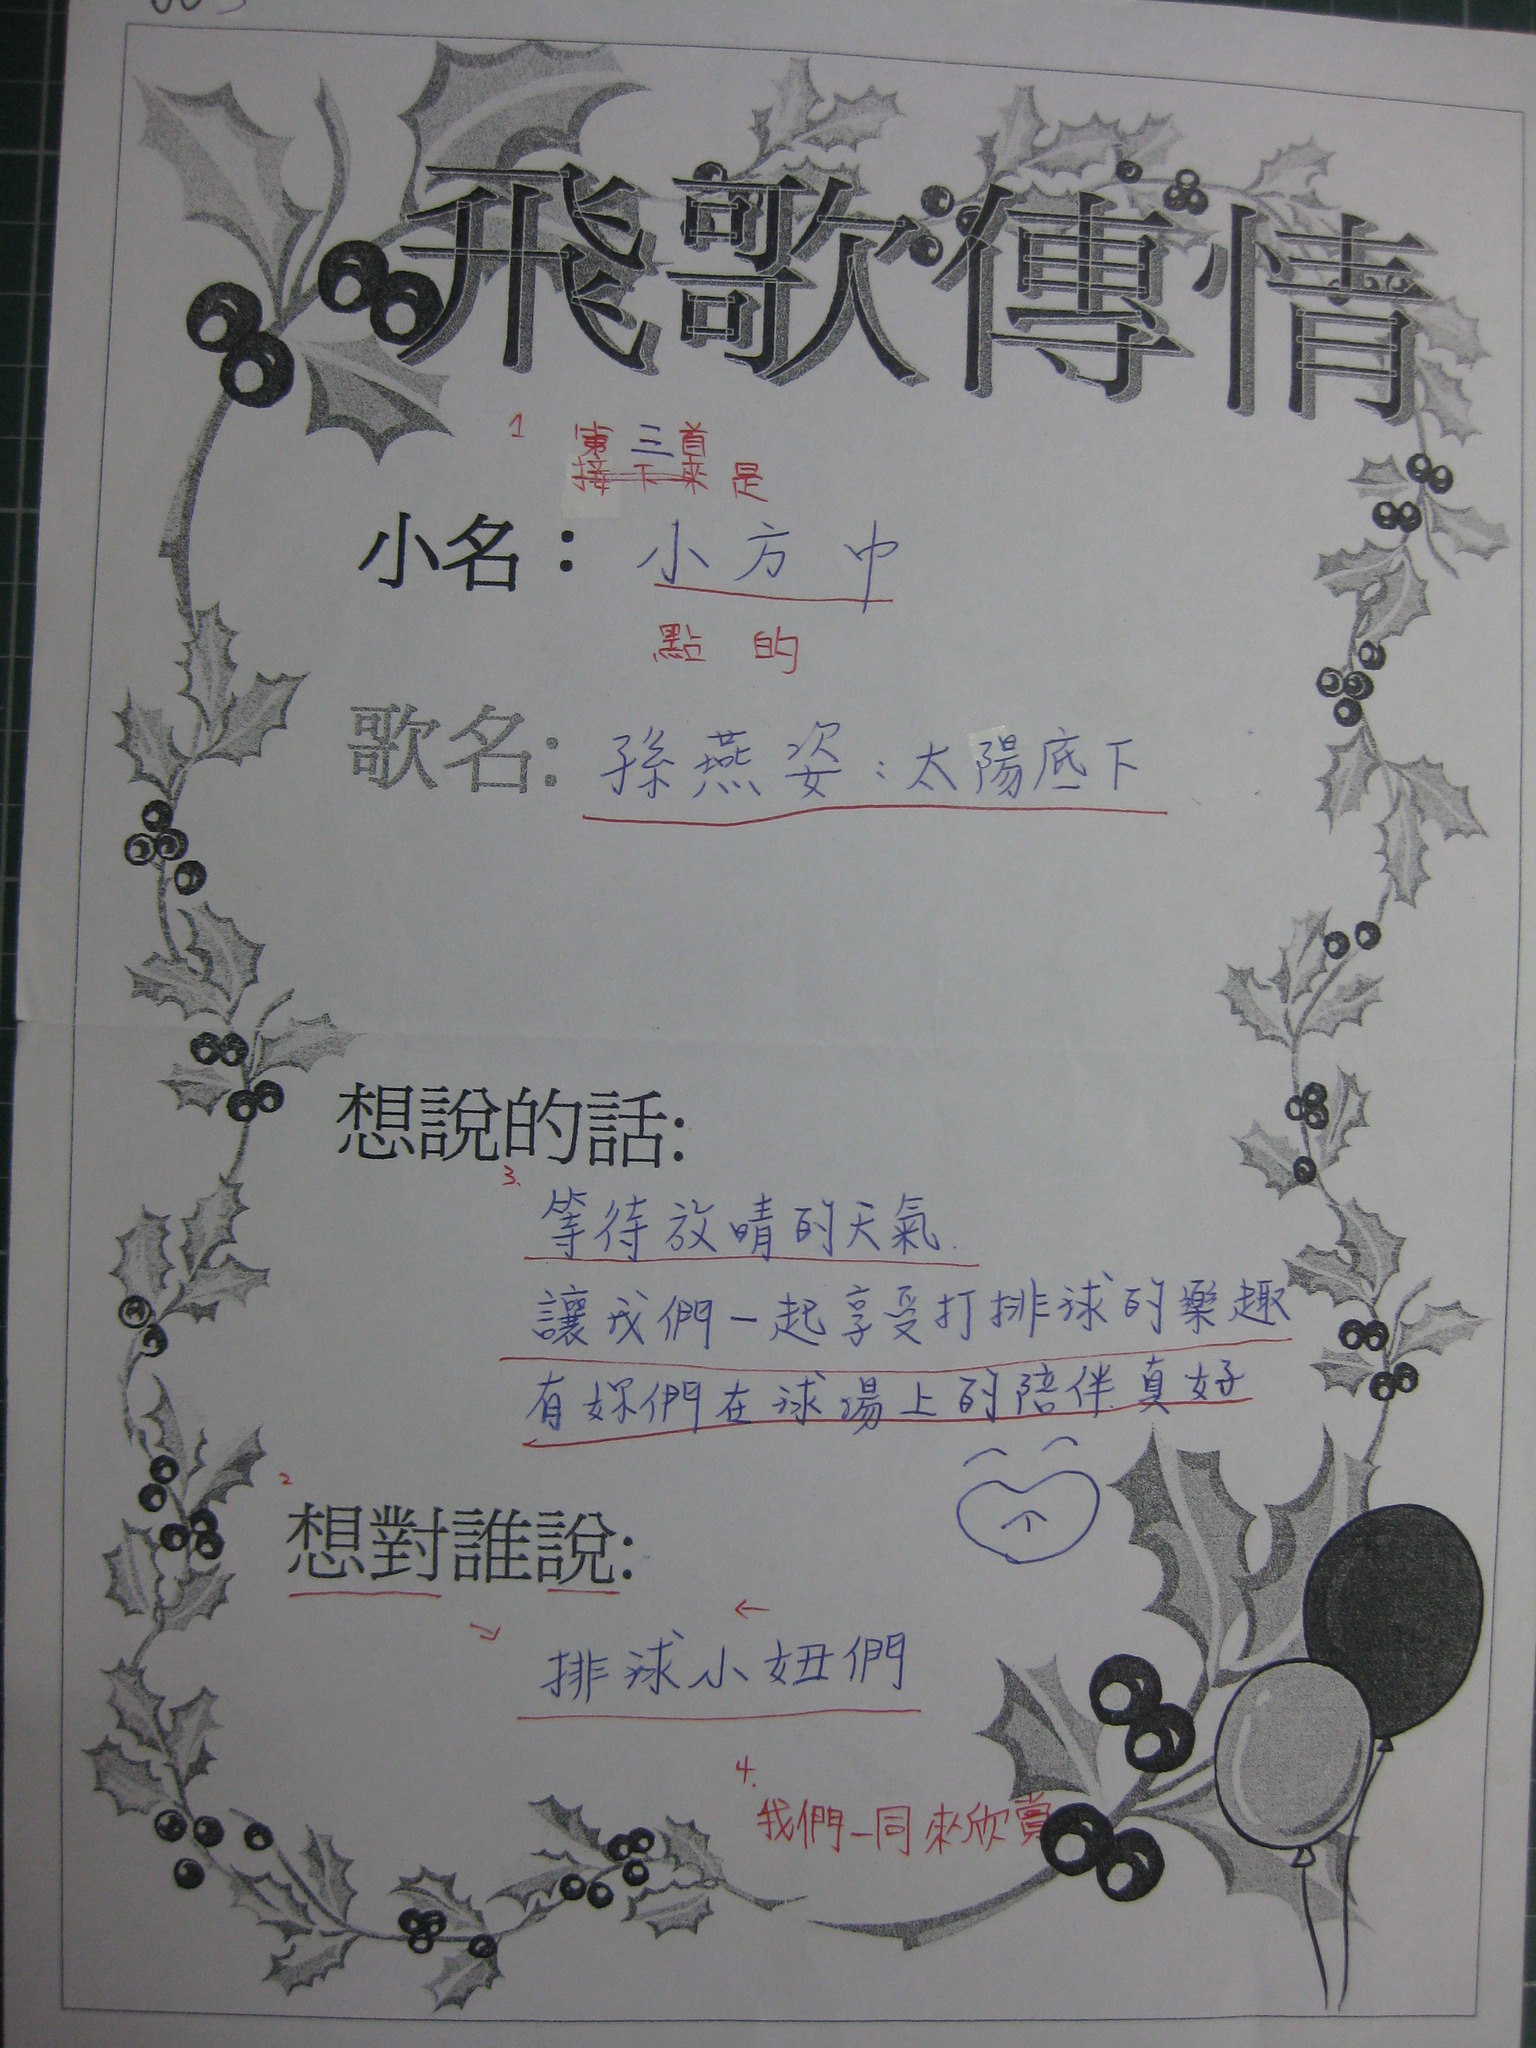 飛歌傳情
1 第三首
接下來是
小名：小方中
點的
歌名:孫燕姿：太陽底下
想說的話:
3.
等待放晴的天氣.
讓我們一起享受打排球的樂趣
有妳們在球場上的陪伴真好
2
想對誰說:
排球小妞們
4.
我們一同來欣賞